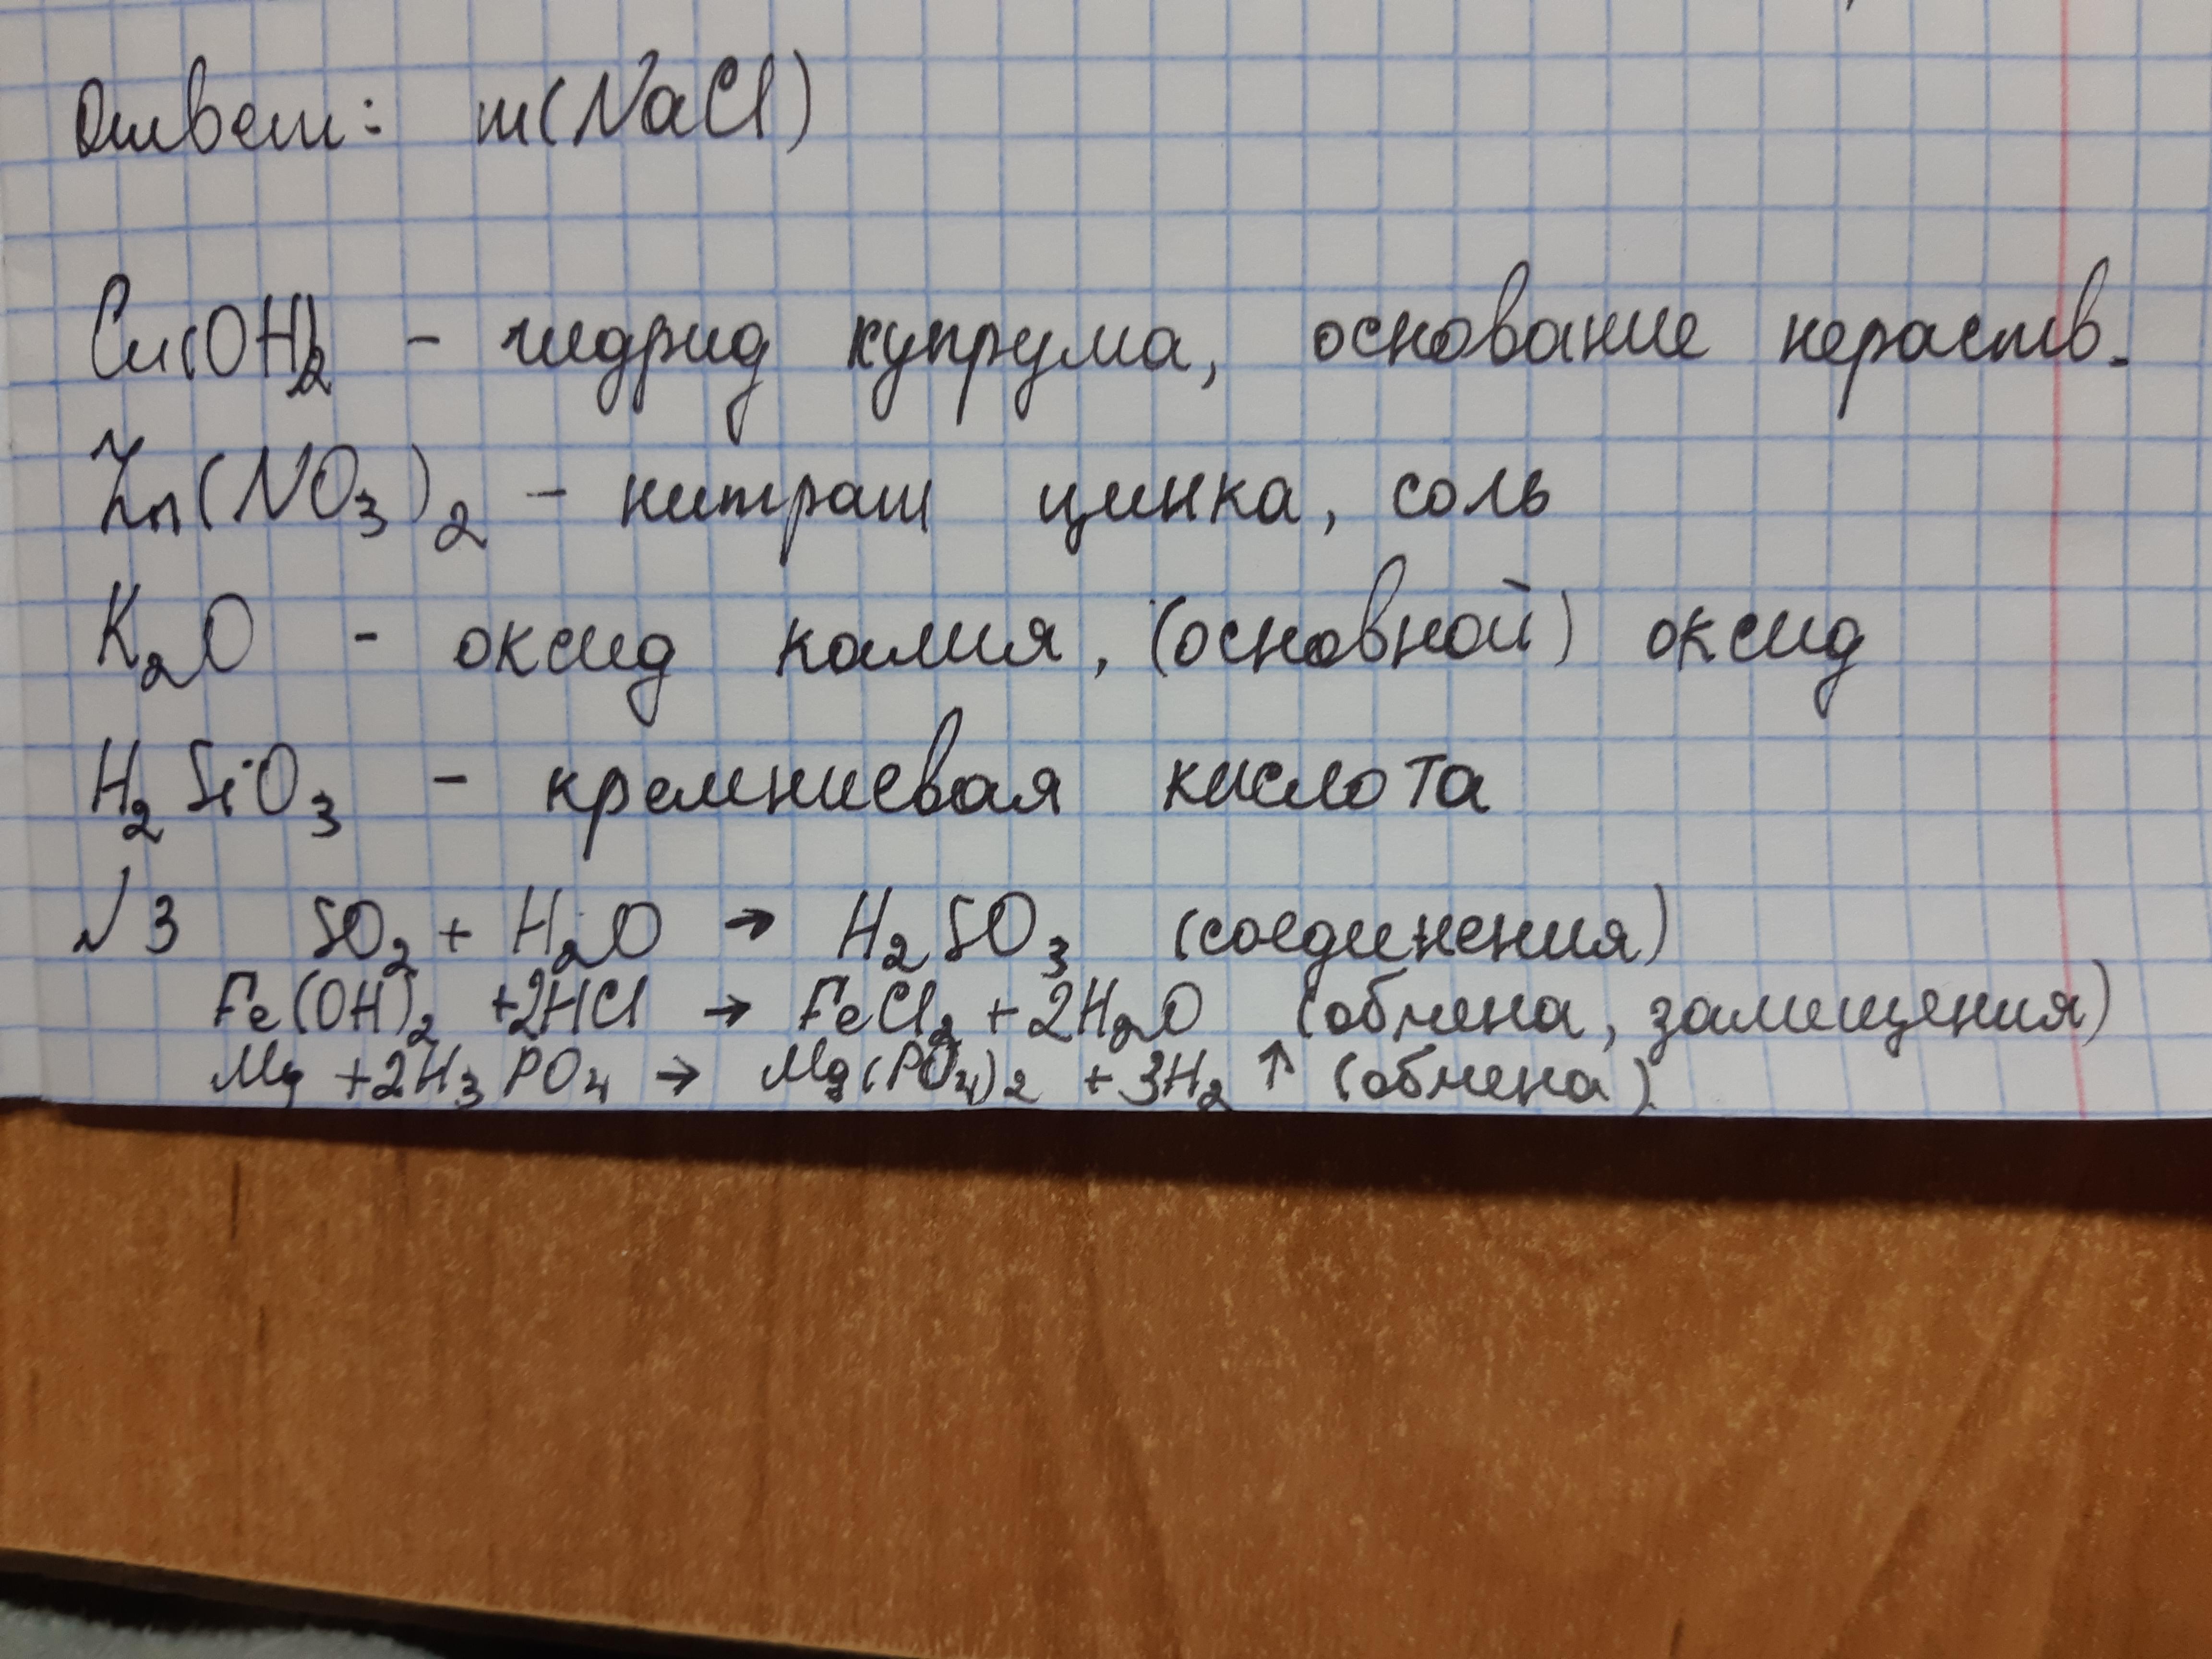 Ответ: m(NaCl)
Cu(OH)2 - гидрид купрума, основание нераств.
Zn(NO3)2 - нитрат цинка, соль
K2O - оксид калия, (основной) оксид
H2SiO3 - кремниевая кислота
№3 SO2 + H2O → H2SO3 (соединения)
Fe(OH)2 +2HCl → FeCl2 + 2H2O (обмена, замещения)
Mg +2H3PO4 → Mg3(PO4)2 + 3H2 ↑ (обмена)